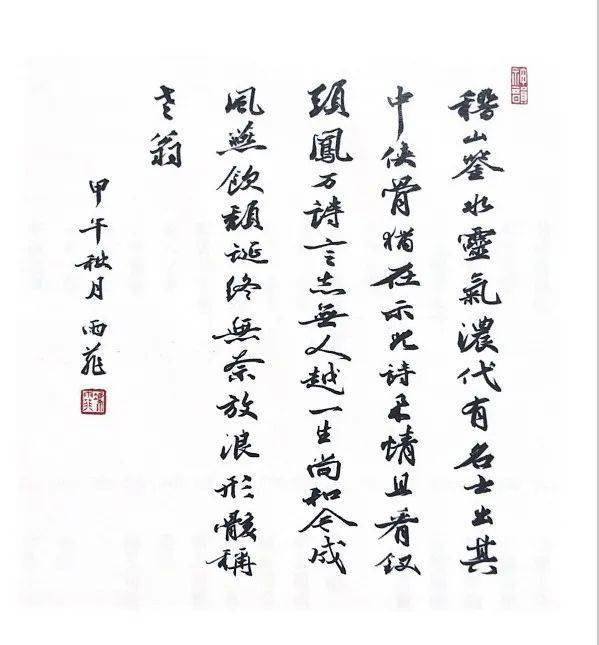 稽山鑒水靈氣濃代有名士出其
中俠骨猶在示兒詩柔情且看釵
頭鳳万詩言志無人越一生尚和令成
風燕飲頹誕終無奈放浪形骸稱
老翁
甲午秋月 雨菲